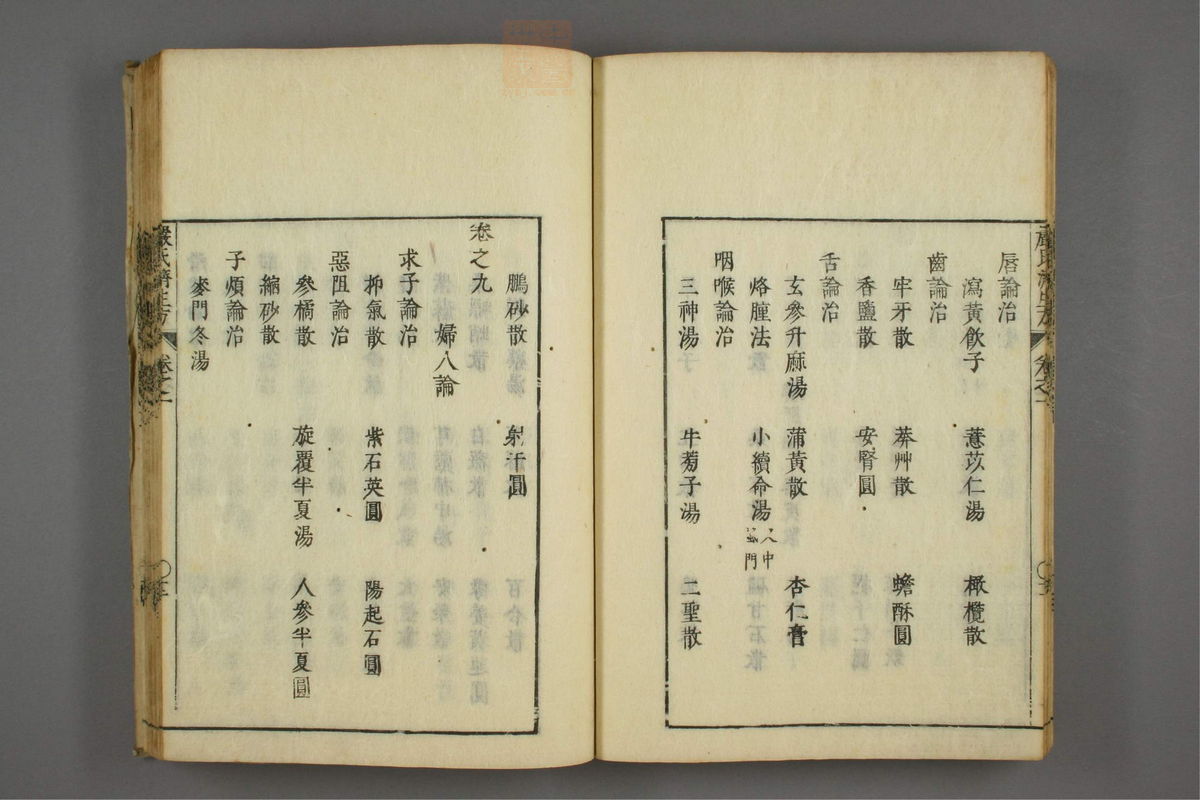 唇論治
瀉黃飲子 薏苡仁湯 橄欖散
齒論治
牢牙散 莽艸散 蟾酥圓
香鹽散 安腎圓
舌論治
玄參升麻湯 蒲黃散 杏仁膏
烙腫法 小續命湯 入中 門
咽喉論治
三神湯 牛蒡子湯 二聖散
鵬砂散 射干圓
卷之九
婦人論
求子論治
抑氣散 紫石英圓 陽起石圓
惡阻論治
參橘散 旋覆半夏湯 人參半夏圓
縮砂散
子煩論治
麥門冬湯
嚴氏濟生方 卷之一